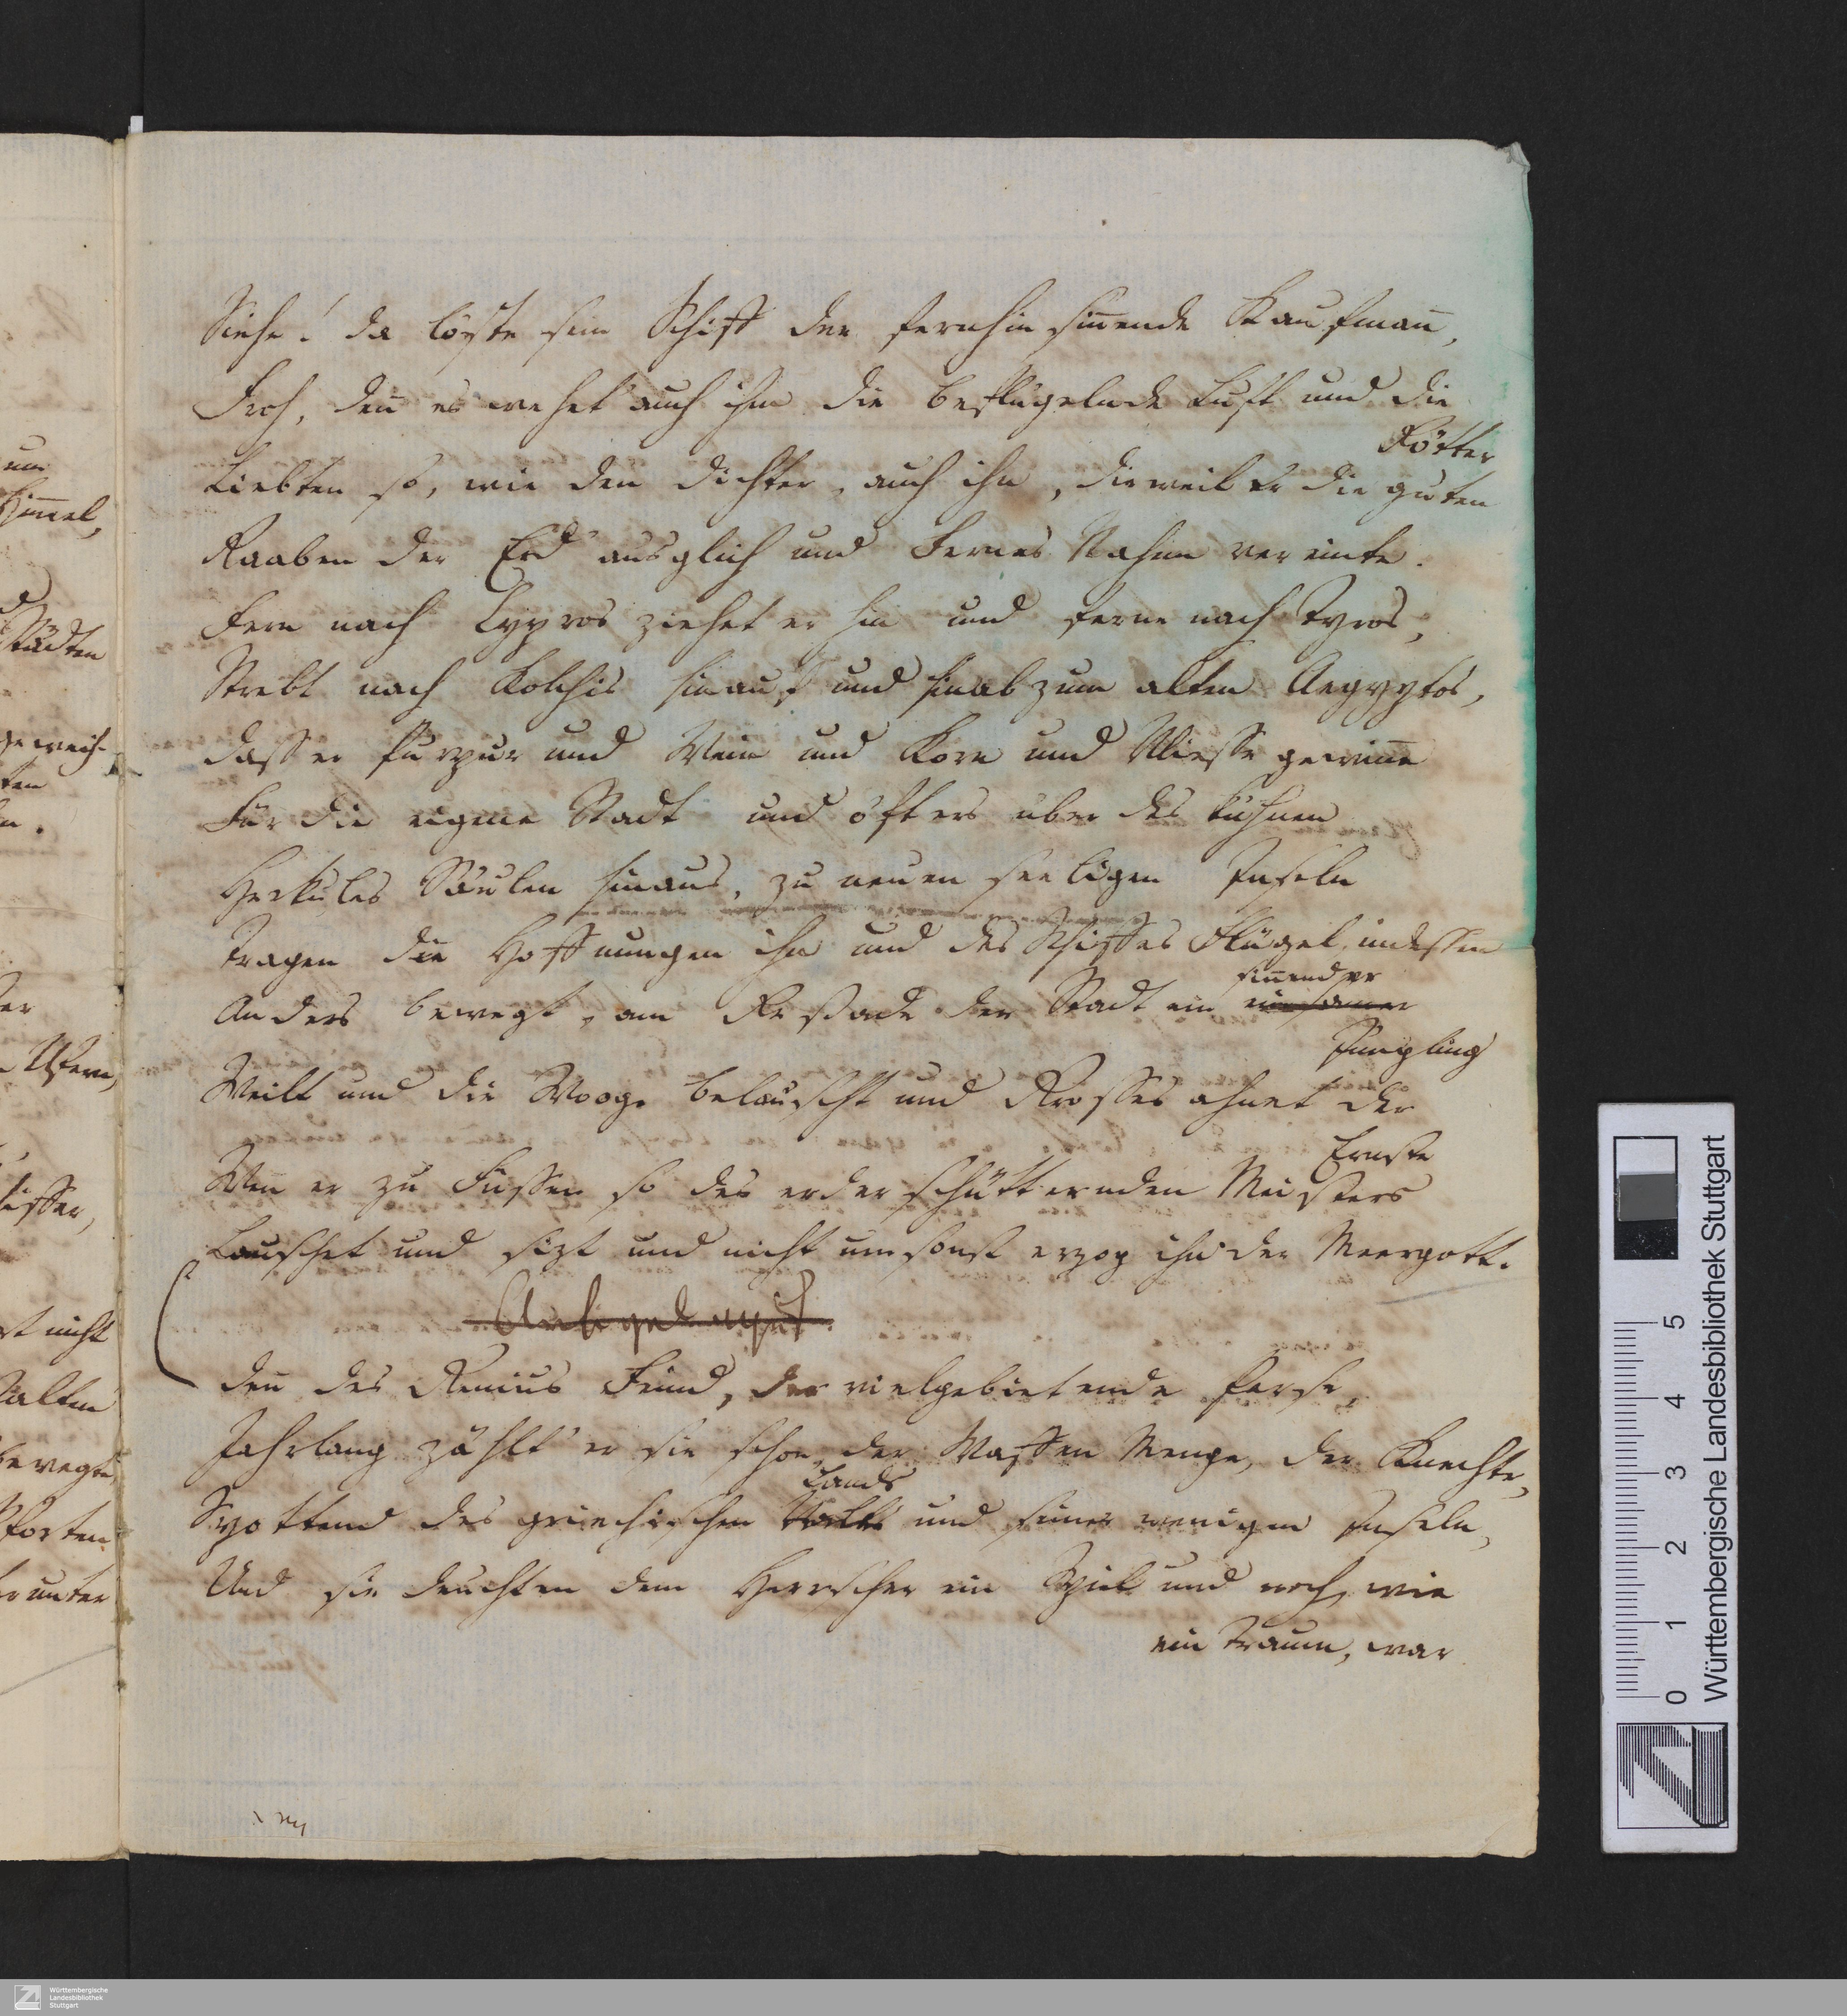 Siehe! da löste sein Schiff der fernhin siñende Kaufmañ,
Froh, deñ es wehet' auch ihm die beflügelnde Luft und die
Götter
Liebten so, wie den Dichter, auch ihn, dieweil er die guten
Gaaben der Erd' ausglich und Fernes Nahem vereinte.
Fern nach Cypros ziehet er hin und ferne nach Tyros,
Strebt nach Kolchis hinauf und hinab zum alten Aegyptos,
Daß er Purpur und Wein und Korn und Vließe gewiñe
Für die eigene Stadt und öfters über des kühnen
Herkules Säulen hinaus, zu neuen seeligen Inseln
Tragen die Hoffnungen ihn und des Schiffes Flügel, indessen
siñender
Anders bewegt, am Gestade der Stadt ein einsamer
Jüngling
Weilt und die Wooge belauscht und Großes ahnet der
Ernste
Weñ er zu Füßen so des erderschütternden Meisters
Lauschet und sizt und nicht umsonst erzog ihn der Meergott.
Deñ des Genius Feind, der vielgebietende Perse,
Jahrlang zählt' er sie schon, der Waffen Menge, der Knechte,
Lands
Spottend des griechischen Volks und seiner wenigen Inseln,
Und sie deuchten dem Herrscher ein Spiel und noch, wie
ein Traum, war
um
Himmel,
Städten
geweih-
ten
Ufern,
nicht
alten
bewegte
Pforten
herunter
0 1 2 3 4 5
Württembergische Landesbibliothek Stuttgart
Württembergische
Landesbibliothek
Stuttgart